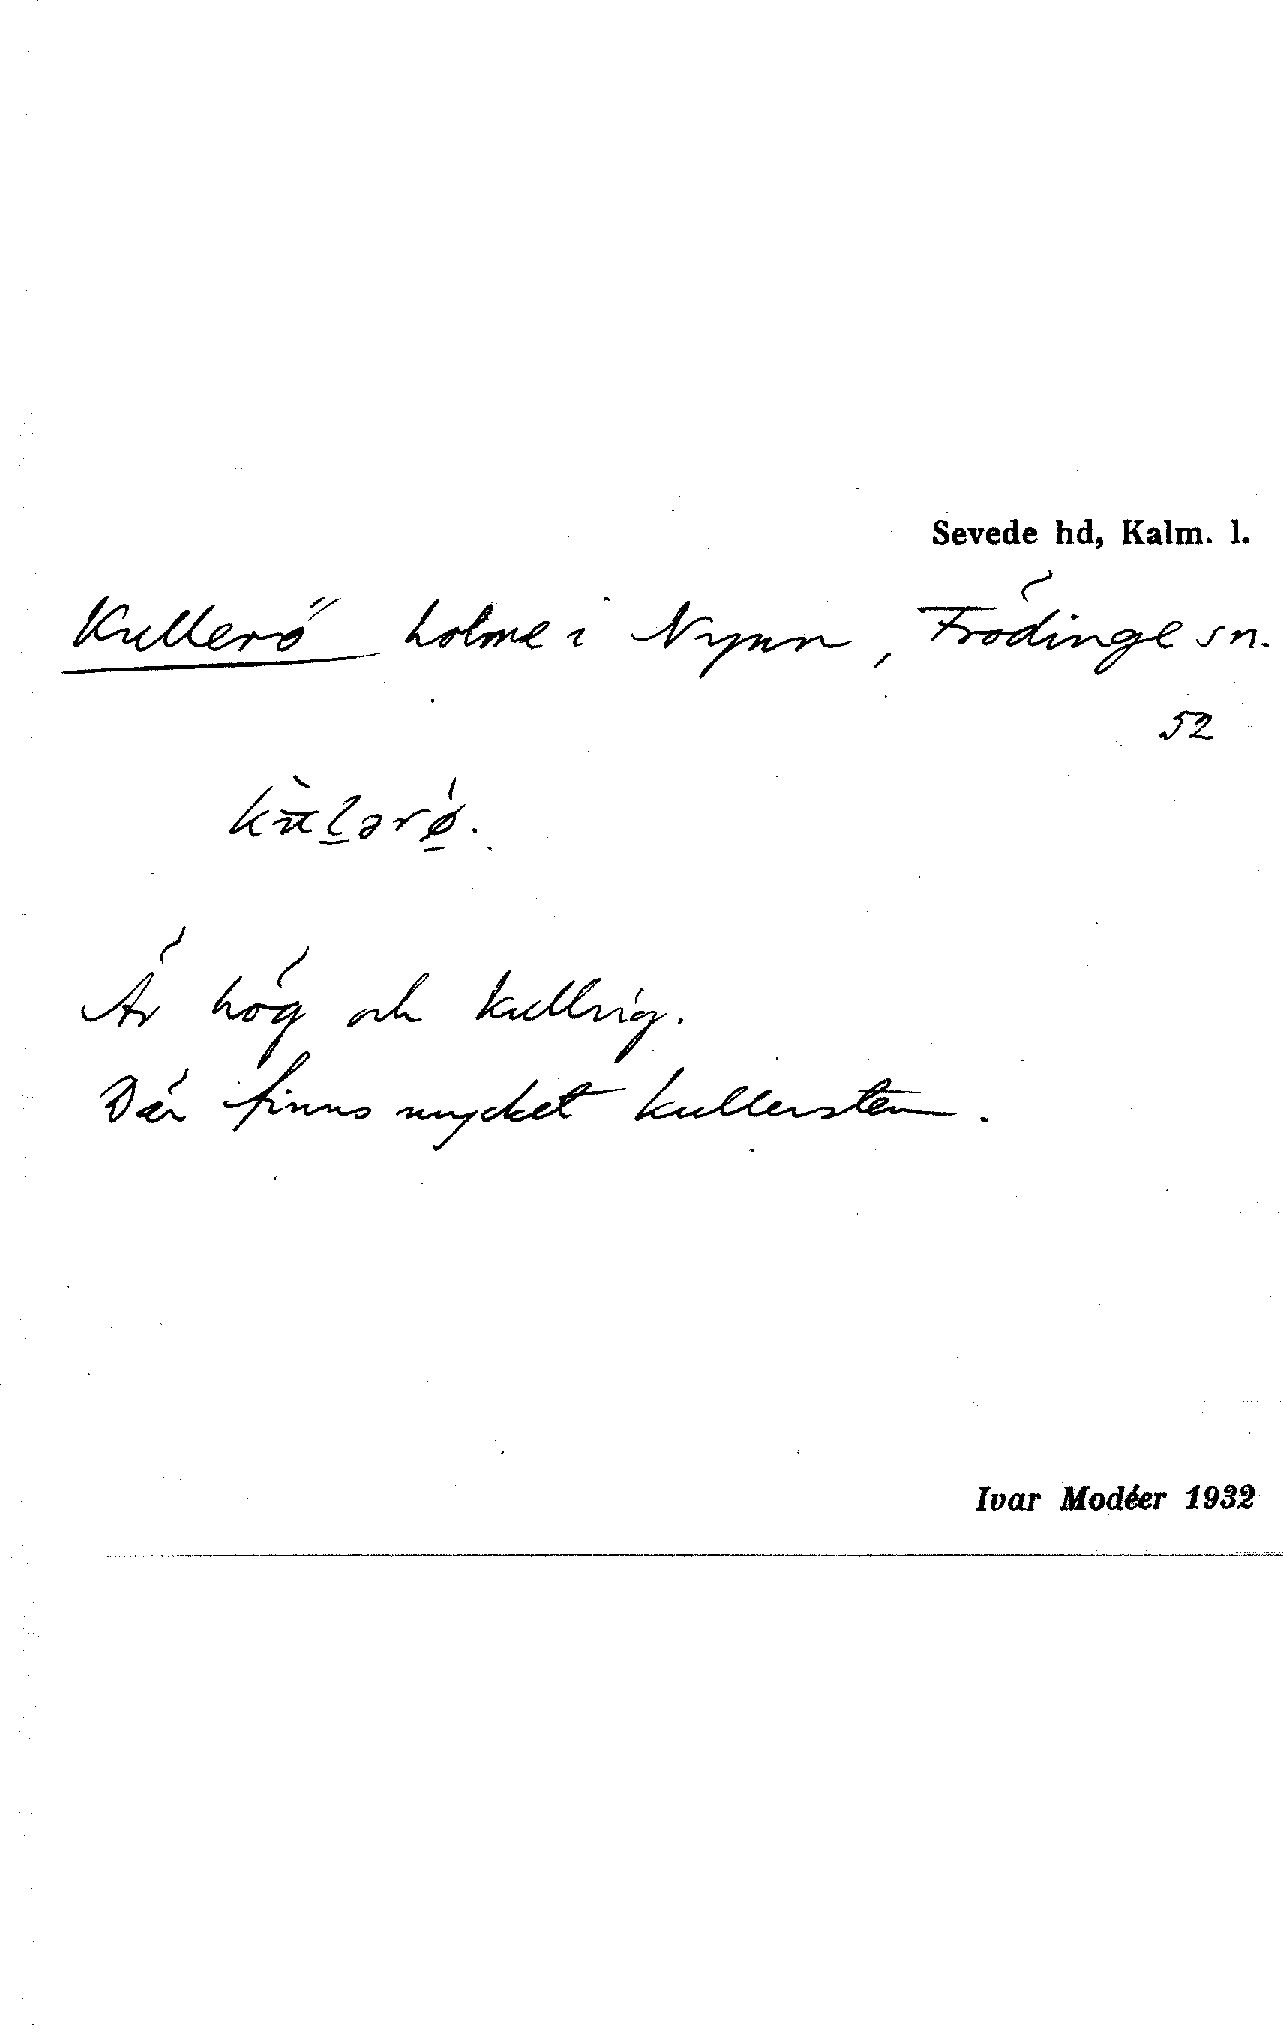 Sevede hd, Kalm. l.
Kullerö holme i Nynn, Frödinge sn.
52
Är hög och kullrig.
Där finns mycket kullersten.
Ivar Modéer 1932